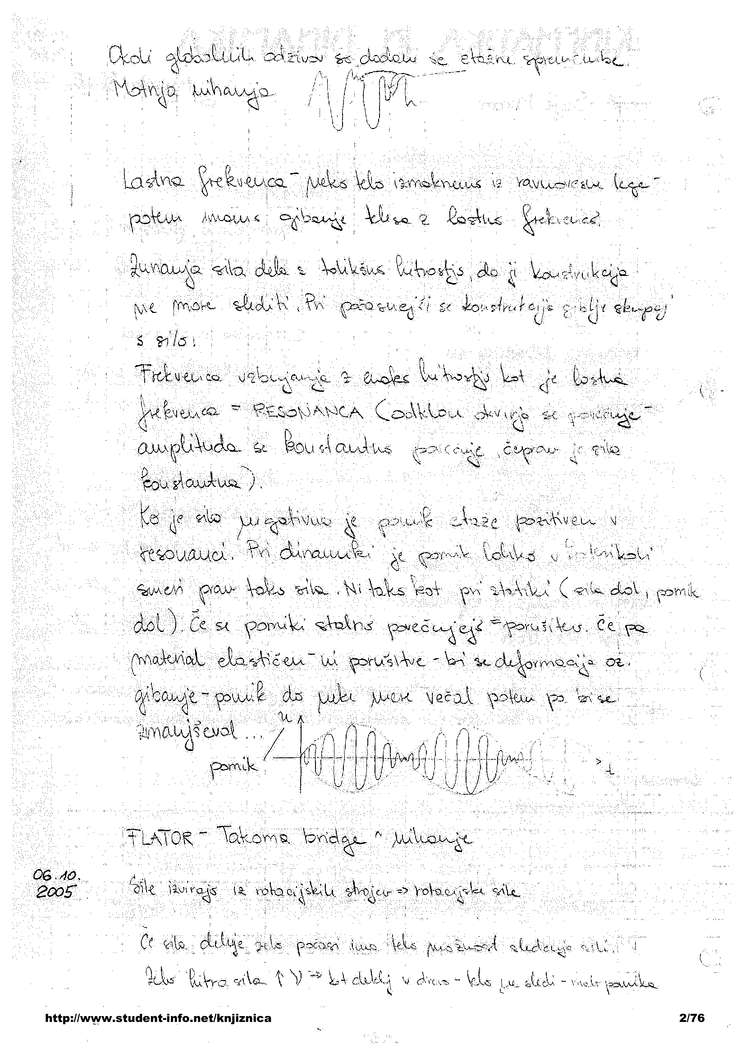 Okoli globalnih odzivov so dodani še etažne spremembe.
Motnja nihanja
Lastna frekvenca - neko telo izmaknemo iz ravnovesne lege -
potem imamo gibanje telesa z lastno frekvenco.
Zunanja sila dela s tolikšno hitrostjo, da ji konstrukcija
ne more slediti. Pri počasnejši se konstrukcija giblje skupaj
s silo.
Frekvenca vzbujanja z enako hitrostjo kot je lastna
frekvenca = RESONANCA (odklon okvirja se povečuje -
amplituda se konstantno povečuje, čeprav je sila
konstantna).
Ko je sila negativna je pomik etaže pozitiven v
resonanci. Pri dinamiki je pomik lahko v katerikoli
smeri prav tako sila. Ni tako kot pri statiki (sila dol, pomik
dol). Če se pomiki stalno povečujejo = porušitev. Če pa
material elastičen - ni porušitve - bi se deformacija oz.
gibanje - pomik do neke mere večal potem pa bi se
zmanjševal ...
u
pomik
t
FLATOR - Takoma bridge ^ nihanje
06.10.
2005
Sile izvirajo iz rotacijskih strojev => rotacijske sile
Če sila deluje zelo počasi ima telo možnost sledenja sili.
Zelo hitra sila ↑ν => kot dekilj v drevo - telo ne sledi - malo pomika
http://www.student-info.net/knjiznica
2/76